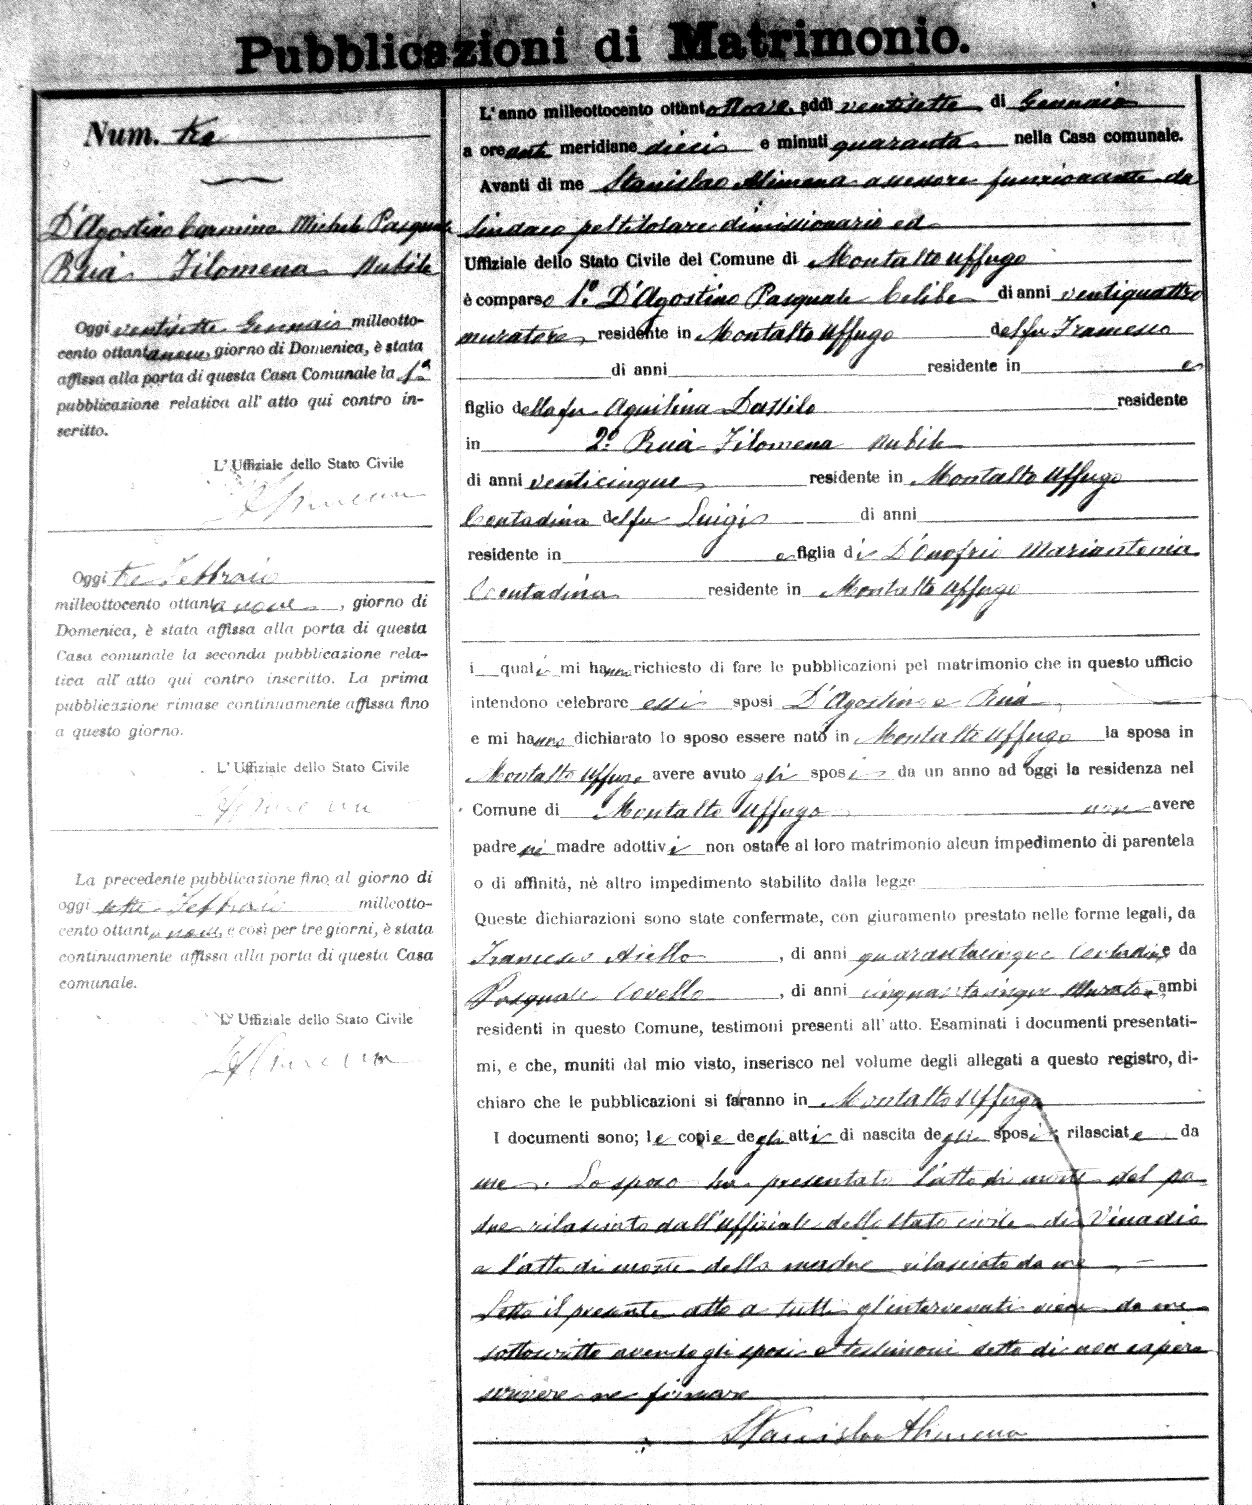 Pubblicazioni di Matrimonio.
Num. tre
D'Agostino Carmine Michele Pasquale
Ruà Filomena Nubile
Oggi ventisette Gennaio milleotto-
cento ottantanove, giorno di Domenica, è stata
affissa alla porta di questa Casa Comunale la 1ª
pubblicazione relativa all' atto qui contro in-
scritto.
L' Uffiziale dello Stato Civile
Oggi tre Febbraio
milleottocento ottantanove, giorno di
Domenica, è stata affissa alla porta di questa
Casa comunale la seconda pubblicazione rela-
tiva all' atto qui contro inscritto. La prima
pubblicazione rimase continuamente affissa fino
a questo giorno.
L' Uffiziale dello Stato Civile
La precedente pubblicazione fino al giorno di
oggi Febbraio milleotto-
cento ottantanove, e così per tre giorni, è stata
continuamente affissa alla porta di questa Casa
comunale.
L' Uffiziale dello Stato Civile
L'anno milleottocento ottantanove, addì ventisette di Gennaio
a ore anti meridiane dieci e minuti quaranta nella Casa comunale.
Avanti di me Stanislao Alimena assessore funzionante da
Sindaco pel titolare dimissionario ed
Uffiziale dello Stato Civile del Comune di Montalto Uffugo
è comparso 1º D'Agostino Pasquale Celibe di anni ventiquattro
muratore residente in Montalto Uffugo del fu Francesco
di anni residente in e
figlio della fu Aquilina residente
in 2º Ruà Filomena nubile
di anni venticinque residente in Montalto Uffugo
Contadina del fu Luigi di anni
residente in e figlia di D'Onofrio Mariantonia
Contadina residente in Montalto Uffugo
i quali mi hanno richiesto di fare le pubblicazioni pel matrimonio che in questo ufficio
intendono celebrare essi sposi D'Agostino e Ruà
e mi hanno dichiarato lo sposo essere nato in Montalto Uffugo la sposa in
Montalto Uffugo avere avuto gli sposi da un anno ad oggi la residenza nel
Comune di Montalto Uffugo non avere
padre nè madre adottivi non ostare al loro matrimonio alcun impedimento di parentela
o di affinità, nè altro impedimento stabilito dalla legge
Queste dichiarazioni sono state confermate, con giuramento prestato nelle forme legali, da
Francesco Aiello, di anni quarantacinque Contadino e da
Pasquale Covello, di anni cinquantacinque Muratore, ambi
residenti in questo Comune, testimoni presenti all' atto. Esaminati i documenti presentati-
mi, e che, muniti dal mio visto, inserisco nel volume degli allegati a questo registro, di-
chiaro che le pubblicazioni si faranno in Montalto Uffugo
I documenti sono; le copie degli atti di nascita degli sposi; rilasciate da
me. Lo sposo ha presentato l'atto di morte del pa-
dre rilasciato dall'Uffiziale dello stato civile di Vinadio
e l'atto di morte della madre rilasciato da me
Letto il presente atto a tutti gl'intervenuti viene da me
sottoscritto avendo gli sposi e testimoni detto di non sapere
scrivere ne firmare
Stanislao Alimena